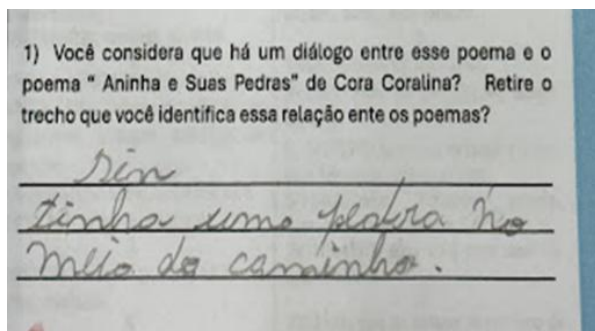 1) Você considera que há um diálogo entre esse poema e o
poema “ Aninha e Suas Pedras” de Cora Coralina? Retire o
trecho que você identifica essa relação ente os poemas?
Sin
tinha uma pedra no
meio do caminho.